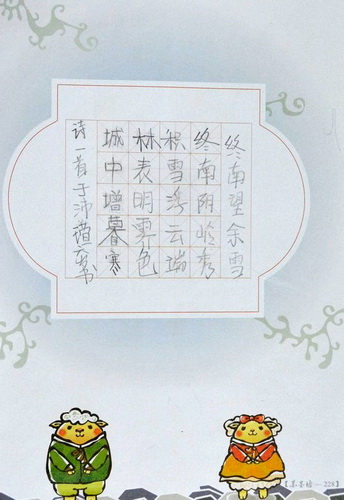 终南望余雪
终南阴岭秀
积雪浮云端
林表明霁色
城中增暮寒
诗一首于沛蕴书